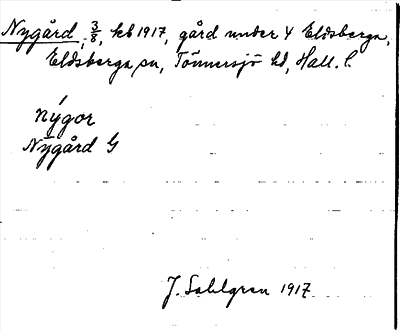 Nygård, 3/8, kb 1917, gård under 4 Eldsberga,
Eldsberga sn, Tönnersjö hd, Hall. l.
nýgor
Nygård G
J. Sahlgren 1917